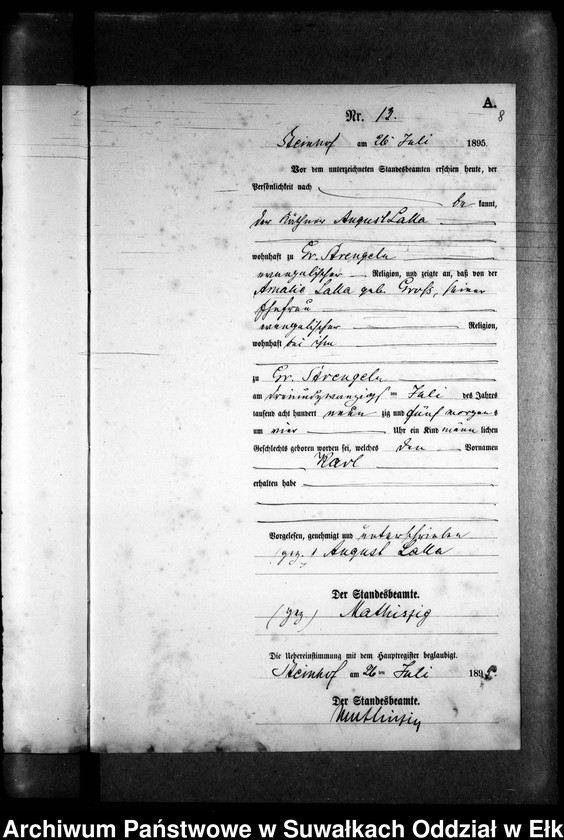 A.
8
Nr. 13.
Steinhof am 26 Juli 1895.
Vor dem unterzeichneten Standesbeamten erschien heute, der
Persönlichkeit nach
be kannt,
der Käthner August Lalla
wohnhaft zu Gr. Strengeln
evangelischer Religion, und zeigte an, daß von der
Amalie Lalla geb. Groß, seiner
Ehefrau
evangelischer Religion,
wohnhaft bei ihm
zu Gr. Strengeln
am dreiundzwanzigs ten Juli des Jahres
tausend acht hundert neun zig und fünf morgens
um vier Uhr ein Kind männ lichen
Geschlechts geboren worden sei, welches den Vornamen
Karl
erhalten habe
Vorgelesen, genehmigt und unterschrieben
(gez.) August Lalla
Der Standesbeamte.
(gez)
Die Uebereinstimmung mit dem Hauptregister beglaubigt.
Steinhof am 26 ten Juli 1895.
Der Standesbeamte.
Archiwum Państwowe w Suwałkach Oddział w Ełk